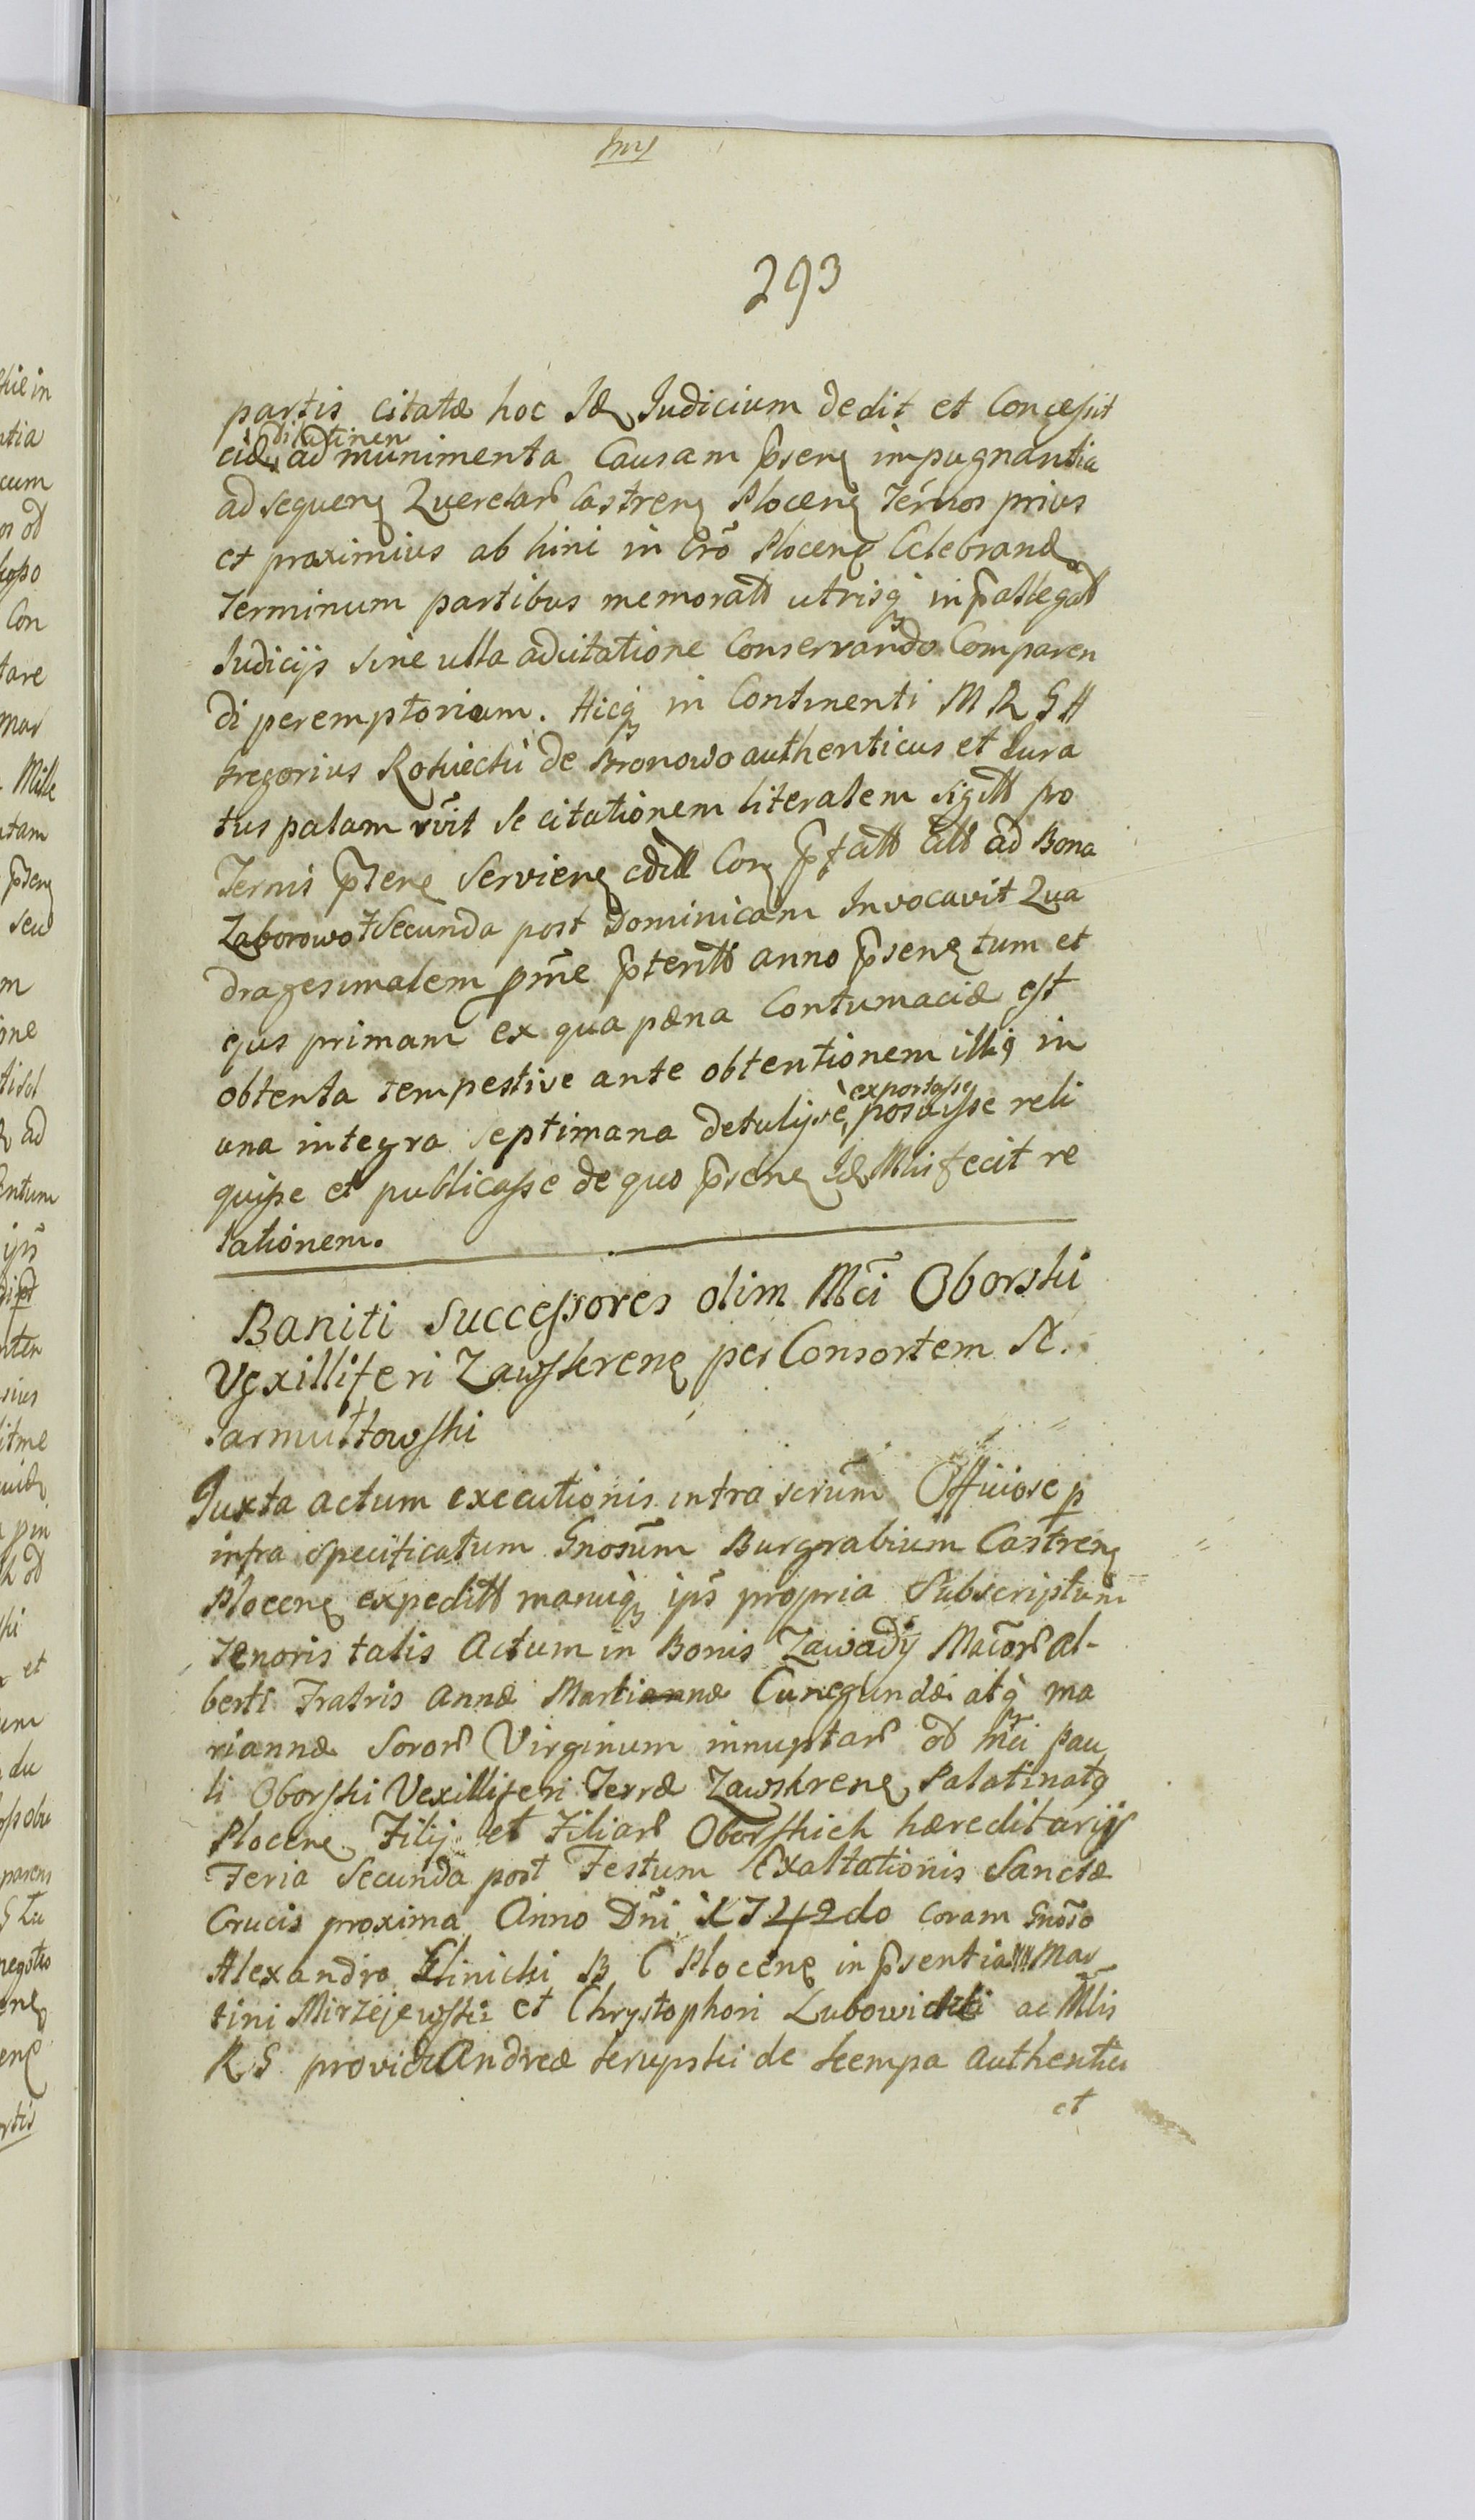 293
partis citatæ hoc Id Judicium dedit et Concessit
eid dilatinem ad munimenta Causam p̃señ impugnantia
ad sequeñ Querelar̃ Castreñ Ploceñ Ter̃nos prius
et proximius ab hinc in Cr̃o Ploceñ Celebrand
Terminum partibus memoratt utrisq in p̃allegatt
Judicijs sine ulla adcitatione Conservando Comparen
di peremptorium. Hicq in Continenti M R G H
Gregorius Rościecki de Bronowo authenticus et Jura
tus palam r̃vit se citationem literalem sigitt pro
Ternis p̃señ Servieñ edill Coñ p̃fatt citt ad Bona
Zaborowo Fsecunda post Dominicam Invocavit Qua
dragesimalem pr̃me p̃teritt anno p̃señ tum et
ejus primam ex qua pæna Contumaciæ est
obtenta tempestive ante obtentionem illiq in
una integra septimana detulisse, exportasse, posuisse reli
quisse et publicasse de quo p̃señ Id Mlis fecit re
lationem.
Baniti Successores olim Mc̃i Oborski
Vexilliferi Zawskreñ per Consortem N.
Jarmułtowski
Juxta actum executionis intra scrium Officiose p
infra specificatum Gnos̃um Burgrabium Castreñ
Ploceñ expeditt manuq ip̃s propria Subscriptum
Tenoris talis Actum in Bonis Zawady Mac̃or̃ al-
berti Fratris Annæ Martiannæ Cunegundæ atq ma
riannæ Soror̃ Virginum innuptar̃ od Mc̃i Pau
li Oborski Vexilliferi Terræ Zawskreñ Palatinatq
Ploceñ Filij et Filiar̃ Oborskich hæreditarijs
Feria Secunda post Festum Exaltationis Sanctæ
Crucis proxima Anno Dñi 1742do coram Gnõso
Alexandro Klinicki B C Ploceñ in p̃sentia Mar
tini Mirzejewski et Chrystophori Lubowicki ac Mlis
R G providi Andreæ Krupski de Kempa Authentici
et